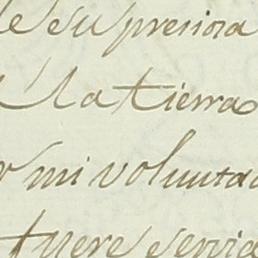 de su preciosa
a la tierra
mi volunta
fuere servi